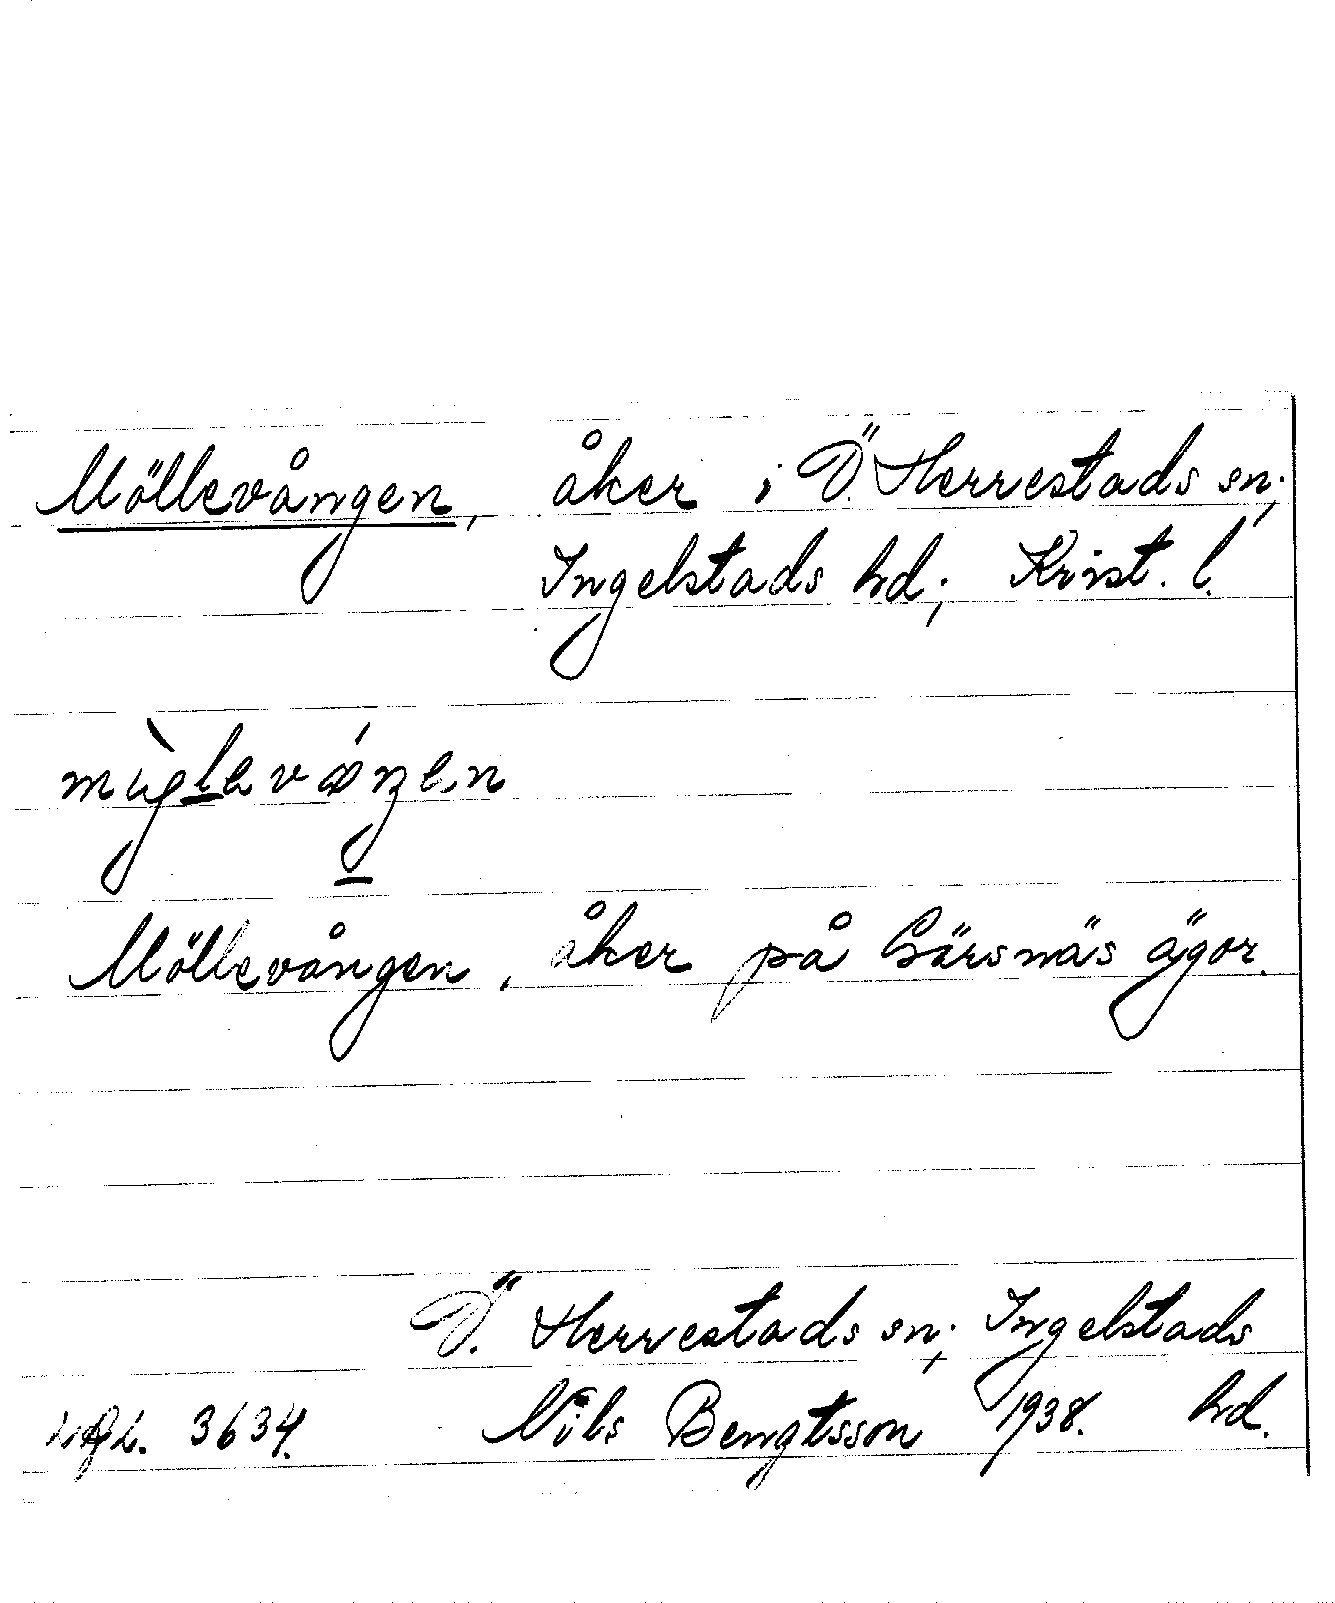 Möllevången, åker i Ö. Herrestads sn;
Ingelstads hd; Krist. l.
Möllevången, åker på Gärsnäs ägor.
Ö. Herrestads sn; Ingelstads
3634. Nils Bengtsson 1938. hd.